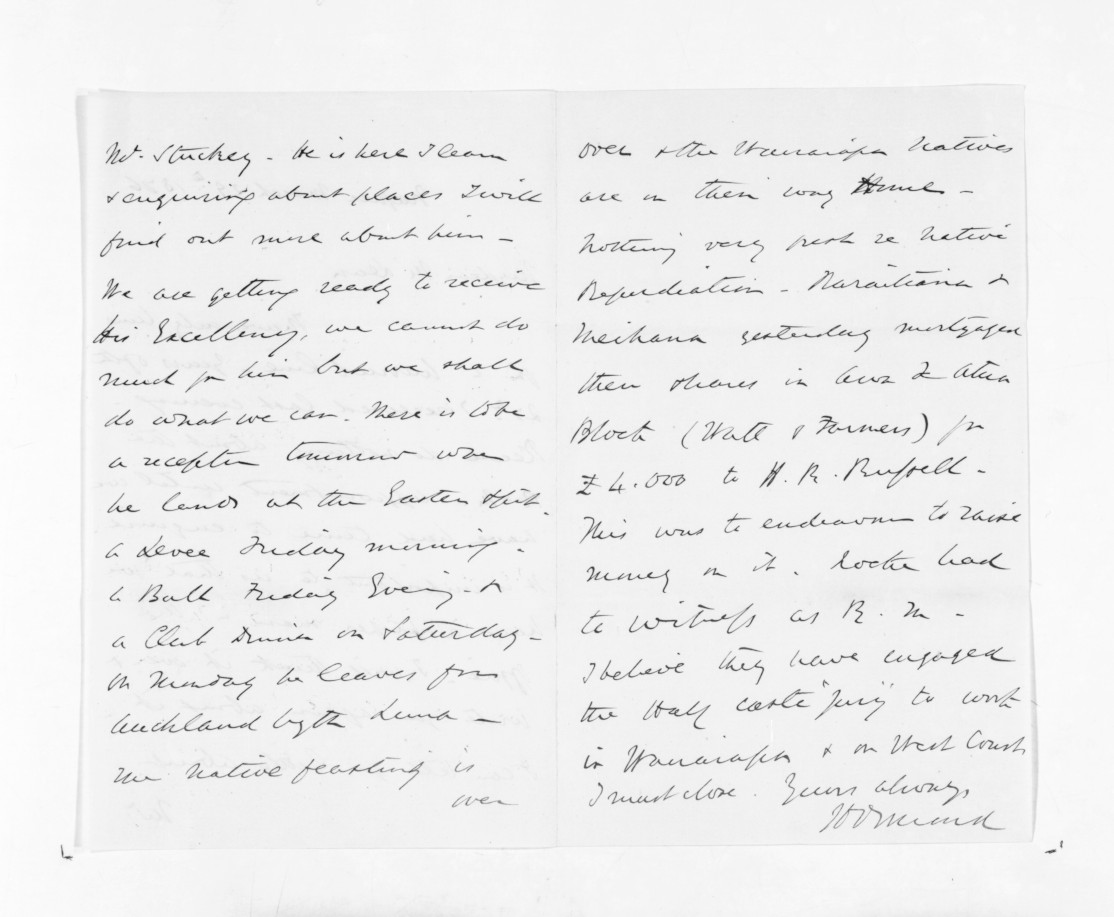 Mr. Stuckey - He is here I learn
& enquiring about places I will
find out more about him -
We are getting ready to receive
His Excellency, we cannot do
much for him but we shall
do what we can. There is to be
a reception tomorrow when
he lands at the Eastern Spit.
a Levee Friday morning.
a Ball Friday Evening. &
a Club Dinner on Saturday -
on Monday he leaves for
Auckland by the Luna -
The Native feasting is
over
over & the Wairarapa Natives
are on their way Home -
Nothing very fresh re Native
Repudiation - Karaitiana &
Meihana yesterday mortgaged
their shares in
Block (Watt & Farmers) for
£4.000 to H. R. Russell -
This was to endeavour to raise
money on it. Locke had
to witness as R. M. -
I believe they have engaged
the Half caste "Jury" to work
in Wairarapa & on West Coast
I must close. Yours always
JD Ormond